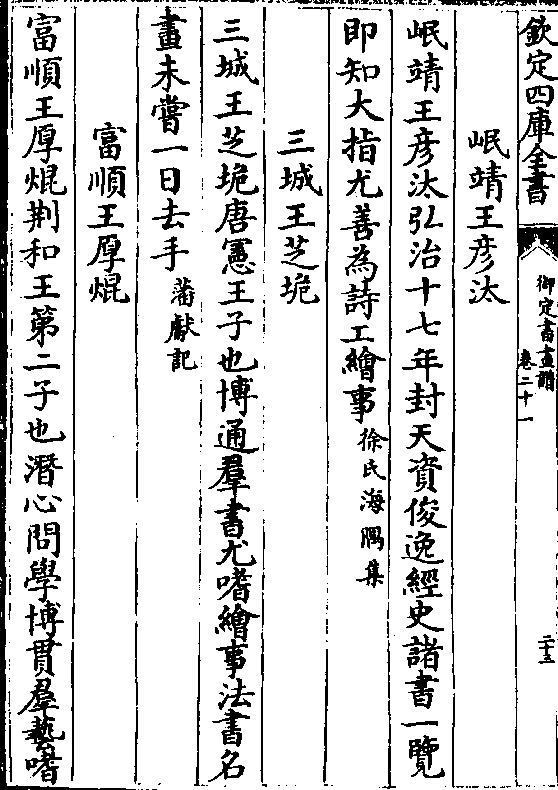 欽定四庫全書
御定書畫譜
卷二十一
二十五
岷靖王彦汰
岷靖王彦汰弘治十七年封天資俊逸經史諸書一覽
即知大指尤善為詩工繪事徐氏海隅集
三城王芝垝
三城王芝垝唐憲王子也博通羣書尤嗜繪事法書名
畫未嘗一日去手藩獻記
富順王厚焜
富順王厚焜荆和王第二子也潛心問學博貫羣藝嗜